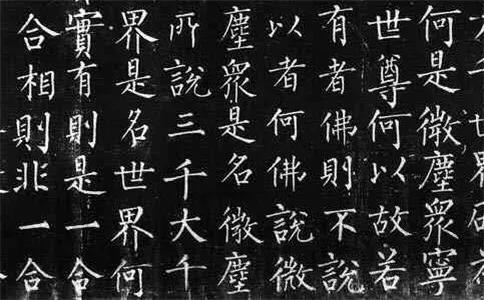 千世界
何是微塵眾寧
世尊何以故若
有者佛則不說
以者何佛說微
塵眾是名微塵
所說三千大千
界是名世界何
實有則是一合
合相則非一合